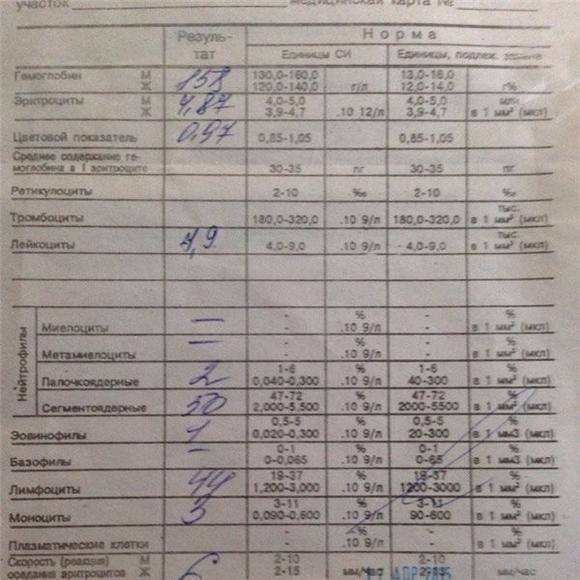 участок медицинская карта №
Резуль-тат Норма
Единицы СИ Единицы, подлеж. замене
Гемоглобин М 130,0-160,0 13,0-16,0
Ж 120,0-140,0 г/л 12,0-14,0 г%
Эритроциты М 4,87 4,0-5,0 4,0-5,0 млн
Ж 3,9-4,7 .10 12/л 3,9-4,7 в 1 мм³ (мкл)
Цветовой показатель 0,97 0,85-1,05 0,85-1,05
Среднее содержание ге-
моглобина в 1 эритроците 30-35 пг 30-35 пг
Ретикулоциты 2-10 ‰ 2-10 ‰
Тромбоциты 180,0-320,0 .10 9/л 180,0-320,0 тыс. в 1 мм³ (мкл)
Лейкоциты 4,0-9,0 .10 9/л 4,0-9,0 тыс. в 1 мм³ (мкл)
Нейтрофилы
Миелоциты — - % - %
- .10 9/л - в 1 мм³ (мкл)
Метамиелоциты — - % - %
- .10 9/л - в 1 мм³ (мкл)
Палочкоядерные 2 1-6 % 1-6 %
0,040-0,300 .10 9/л 40-300 в 1 мм³ (мкл)
Сегментоядерные 50 47-72 % 47-72 %
2,000-5,500 .10 9/л 2000-5500 в 1 мм³ (мкл)
Эозинофилы 1 0,5-5 % 0,5-5 %
0,020-0,300 .10 9/л 20-300 в 1 мм3 (мкл)
Базофилы — 0-1 % 0-1 %
0-0,065 .10 9/л 0-65 в 1 мм³ (мкл)
Лимфоциты 44 19-37 % 19-37 %
1,200-3,000 .10 9/л 1200-3000 в 1 мм³ (мкл)
Моноциты 3 3-11 % 3-11 %
0,090-0,600 .10 9/л 90-600 в 1 мм³ (мкл)
Плазматические клетки - % - %
- .10 9/л - в 1 мм³ (мкл)
Скорость (реакция) М 2-10 2-10
оседания эритроцитов Ж 2-15 мм/час мм/час